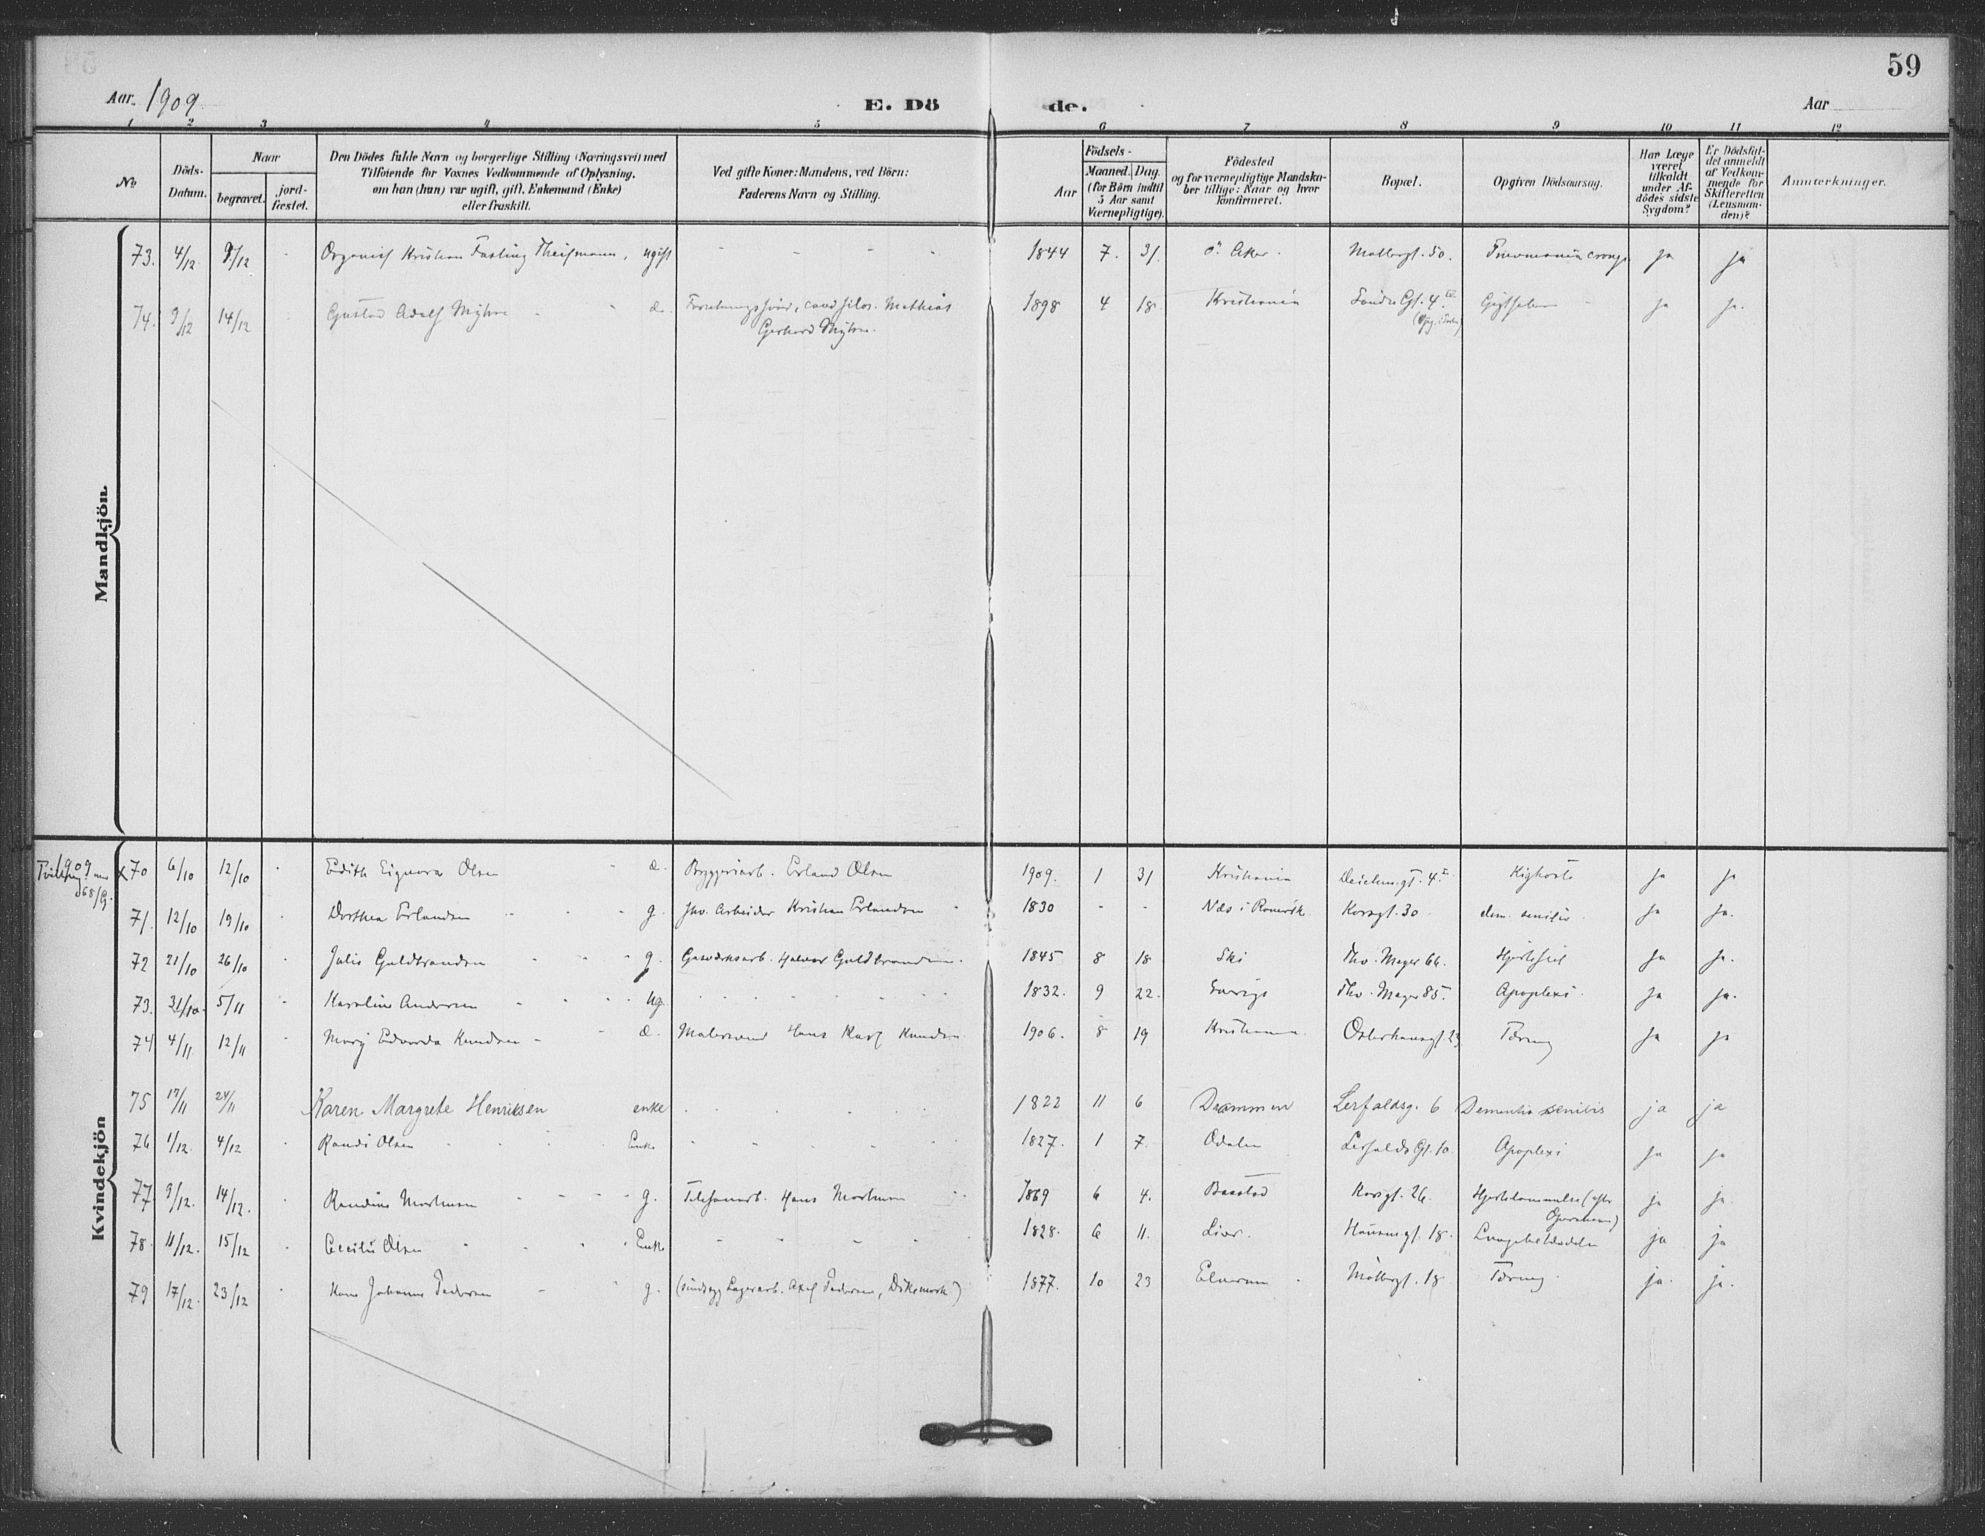 59
Aar. 1909
E. Dö de.
Aar
1 2 3 4 5 6 7 8 9 10 11 12
No.
Döds-Datum.
Naar
begravet.
jord-fæstet.
Den Dödes fulde Navn og borgerlige Stilling (Næringsvei) med
Tilföiende for Voxnes Vedkommende af Oplysning,
om han (hun) var ugift, gift, Enkemand (Enke)
eller fraskilt.
Ved gifte Koner: Mandens, ved Börn:
Faderens Navn og Stilling.
Födsels-
Aar
Maaned. Dag.
(for Börn indtil
5 Aar samt
Værnepligtige).
Födested
og for værnepligtige Mandska-
ber tillige: Naar og hvor
konfirmeret.
Bopæl.
Opgiven Dödsaarsag.
Har Læge
været
tilkaldt
under Af-
dödes sidste
Sygdom?
Er Dödsfal-
det anmeldt
af Vedkom-
mende for
Skifteretten
(Lensman-
den)?
Anmerkninger.
Mandkjön.
73. 4/12 9/12 Organist Kristian Fasting Theismann, ugift 1844 7. 31. Ö. Aker. Møllergt. 50. Pneumonia croup. ja ja
74. 9/12 14/12 Gustav Adolf Myhre d. Forretningsförer, cand. filos. Mathias
Gerhard Myhre. 1898 4 18. Kristiania Søndre Gt. 4 IV Gigtfeber ja ja.
Kvindekjön
1909
Tvilling
d 68/9.
70 6/10 12/10 Edith Signora Olsen d. Bryggeriarb. Erland Olsen 1909. 1 31 Kristiania Deichm.gt. 4 Kighoste ja ja
71. 12/10 19/10 Dorthea Erlandsen g. Jhv. Arbeider Kristian Erlandsen 1830 - - Næs i Romerik. Korsgt. 30 dem. senilis. ja ja.
72 21/10 26/10 Julie Guldbrandsen g. Gasværksarb. Halvor Guldbrandsen. 1845 8 18 Ski Thv. Meyer 66. Hjertefeil ja ja.
73. 31/10. 5/11 Karoline Andersen ug. 1832. 9 22. Sverige Thv. Meyer 85. Apoplexi. ja ja.
74 4/11 12/11 Mary Edvarda Knudsen d. Malersvend Hans Karl Knudsen 1906. 8 19 Kristiania Osterhausgt. 29 Tæring ja ja
75 17/11 24/11 Karen Margrete Henriksen enke 1822 11 6 Drammen Lerfaldsg. 6 Dementia senilis ja ja
76 1/12. 4/12 Randi Olsen Enke 1827. 1 7. Odalen Lerfalds Gt. 10. Apoplexi ja ja
77 9/12. 14/12. Randine Mortensen g. Telefonarb. Hans Mortensen 1869 6 4. Baastad Korsgt. 26. Hjertelammelse (efter
Operation) ja ja.
78. 11/12. 15/12 Cecilie Olsen Enke 1828. 6 11. Lier. Hausmgt. 18. Lungebetændelse ja ja
79 17/12. 23/12 Johanne Pedersen g. (sindssyg Lagerarb. Axel Pedersen, Dikemark) 1877. 10 23 Elverum Møllergt. 18 Tæring. ja. ja.